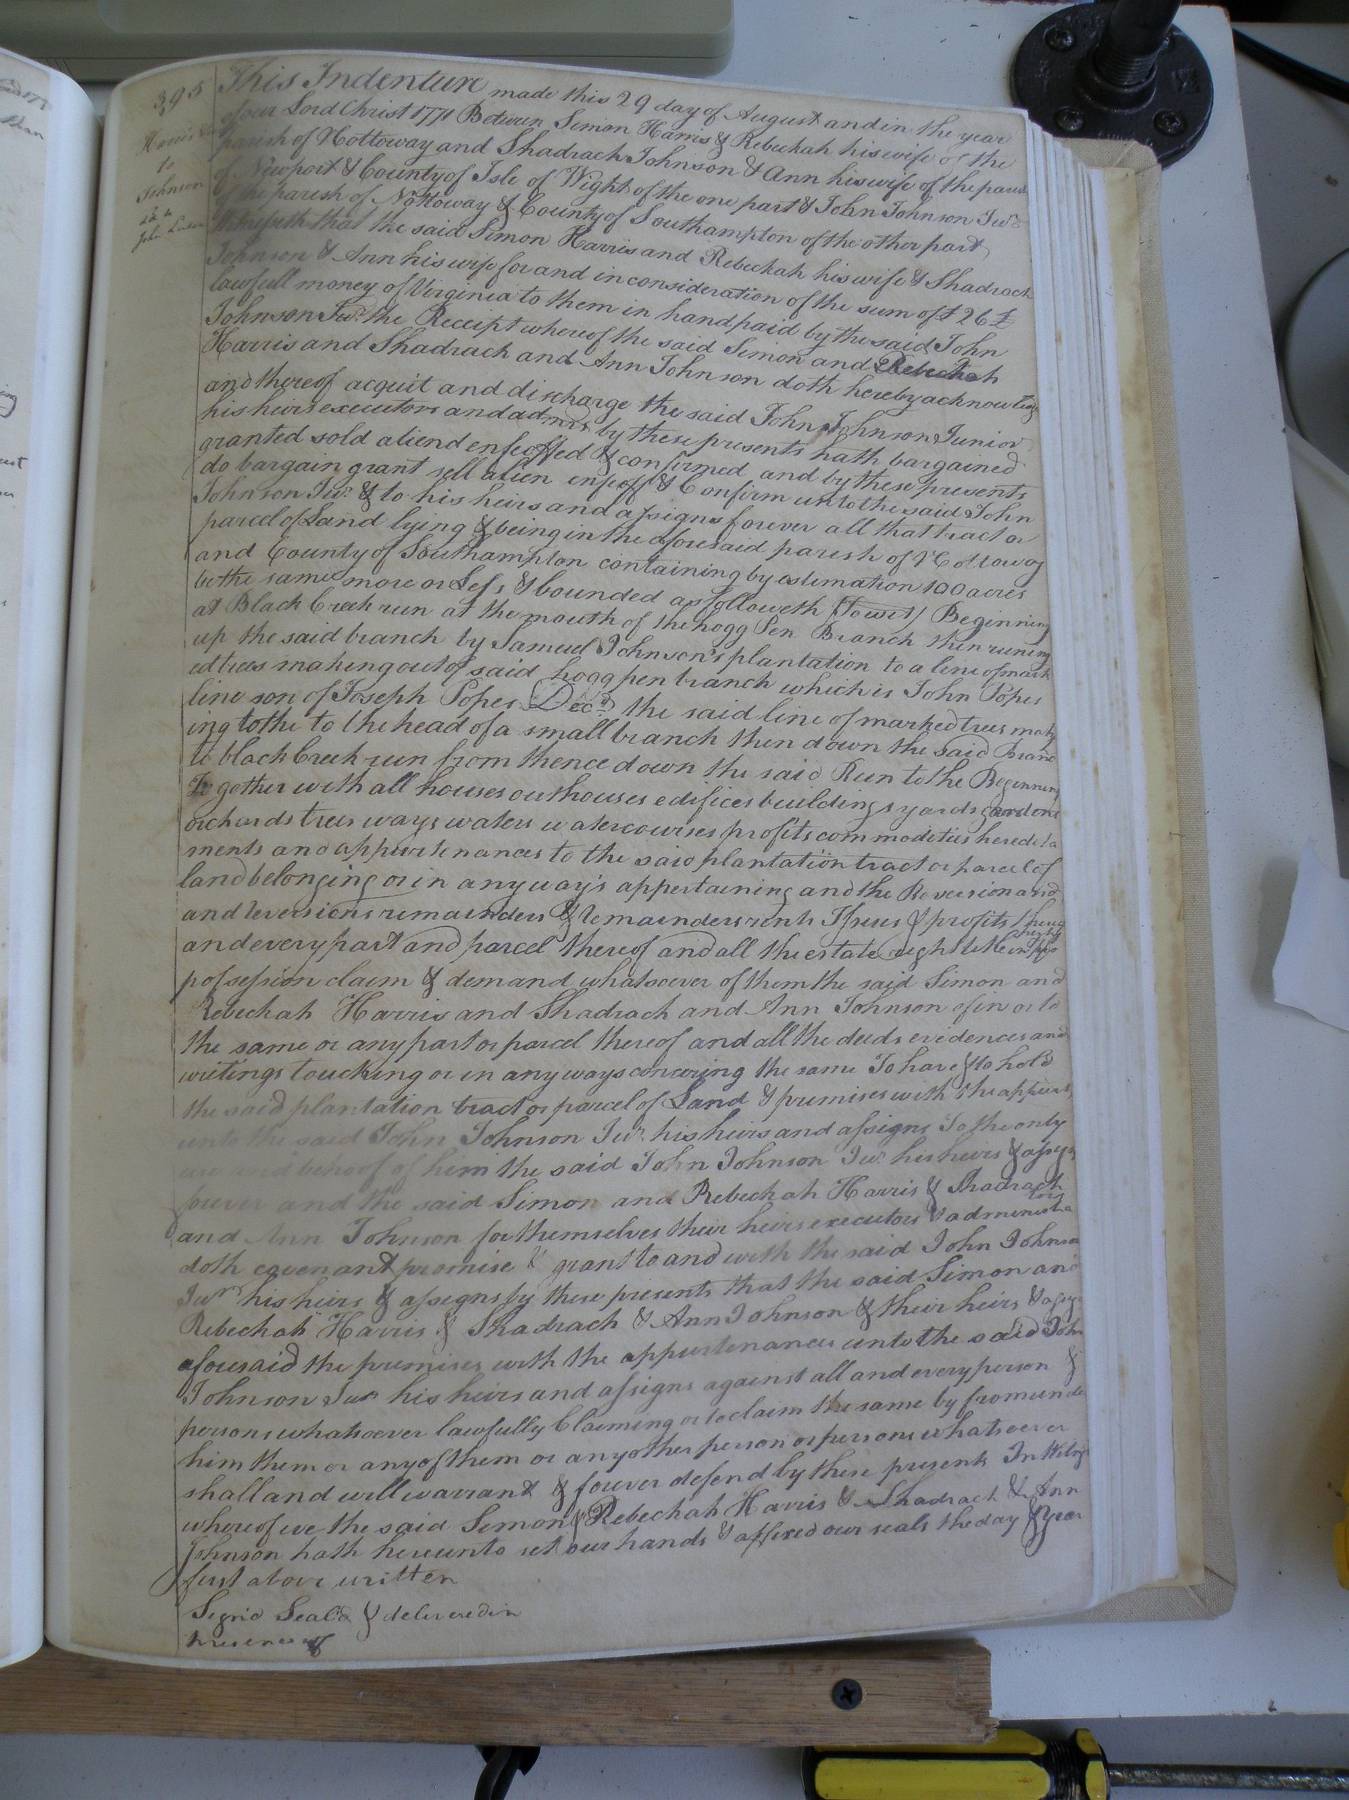 395
Harris &c
to
Johnson
This Indenture made this 29 day of August and in the year
of our Lord Christ 1771 Between Simon Harris & Rebeckah his wife of the
parish of Nottoway and Shadrach Johnson & Ann his wife of the parish
of Newport & County of Isle of Wight of the one part & John Johnson Junr
of the parish of Nottoway & County of Southampton of the other part
Witnesseth that the said Simon Harris and Rebeckah his wife & Shadrach
Johnson & Ann his wife for and in consideration of the sum of £26
lawfull money of Virginia to them in hand paid by the said John
Johnson Junr the Receipt whereof the said Simon and Rebeckah
Harris and Shadrach and Ann Johnson doth hereby acknowledge
and thereof acquit and discharge the said John Johnson Junior
his heirs executors and admrs by these presents hath bargained
granted sold aliend enfeoffed & confirmed and by these presents
do bargain grant sell alien enfeoff & Confirm unto the said John
Johnson Junr & to his heirs and assigns forever all that tract or
parcel of Land lying & being in the aforesaid parish of Nottoway
and County of Southampton containing by estimation 100 acres
be the same more or Less & bounded as followeth (Towit) Beginning
at Black Creek run at the mouth of the hogg Pen Branch then runing
up the said branch by Samuel Johnson's plantation to a line of mark
ed trees making out of said hogg pen branch which is John Popes
line son of Joseph Popes Decd the said line of marked trees mak
ing to the to the head of a small branch then down the said Branch
to black Creek run from thence down the said Run to the Beginning
Together with all houses outhouses edifices buildings yards gardens
orchards trees ways waters watercourses profits commodeties heredita
ments and appurtenances to the said plantation tract or parcel of
land belonging or in any way's appertaining and the Reversion and
and reversions remainders & remainders rents Issues & profits thereof
and every part and parcel thereof and all the estate right title
possession claim & demand whatsoever of them the said Simon and
Rebeckah Harris and Shadrach and Ann Johnson of in or to
the same or any part or parcel thereof and all the deeds evidences and
writings touching or in any ways concering the same To have & to hold
the said plantation tract or parcel of Land & premises with the appurts
unto the said John Johnson Junr his heirs and assigns To the only
use and behoof of him the said John Johnson Junr his heirs & assigns
forever and the said Simon and Rebeckah Harris & Shadrach
and Ann Johnson for themselves their heirs executors & administra
tors
doth covenant promise & grant to and with the said John Johnson
Junr his heirs & assigns by these presents that the said Simon and
Rebeckah Harris & Shadrach & Ann Johnson & their heirs &
aforesaid the premises with the appurtenances unto the said John
Johnson Junr his heirs and assigns against all and every person &
persons whatsoever lawfully Claiming or to claim the same by from unde
him them or any of them or any other person or persons whatsoever
shall and will warrant & forever defend by these presents In Witness
whereof we the said Simon & Rebeckah Harris & Shadrach & Ann
Johnson hath hereunto set our hands & affixed our seals the day & year
first above written
Signd Seal'd & delivered in
presence of